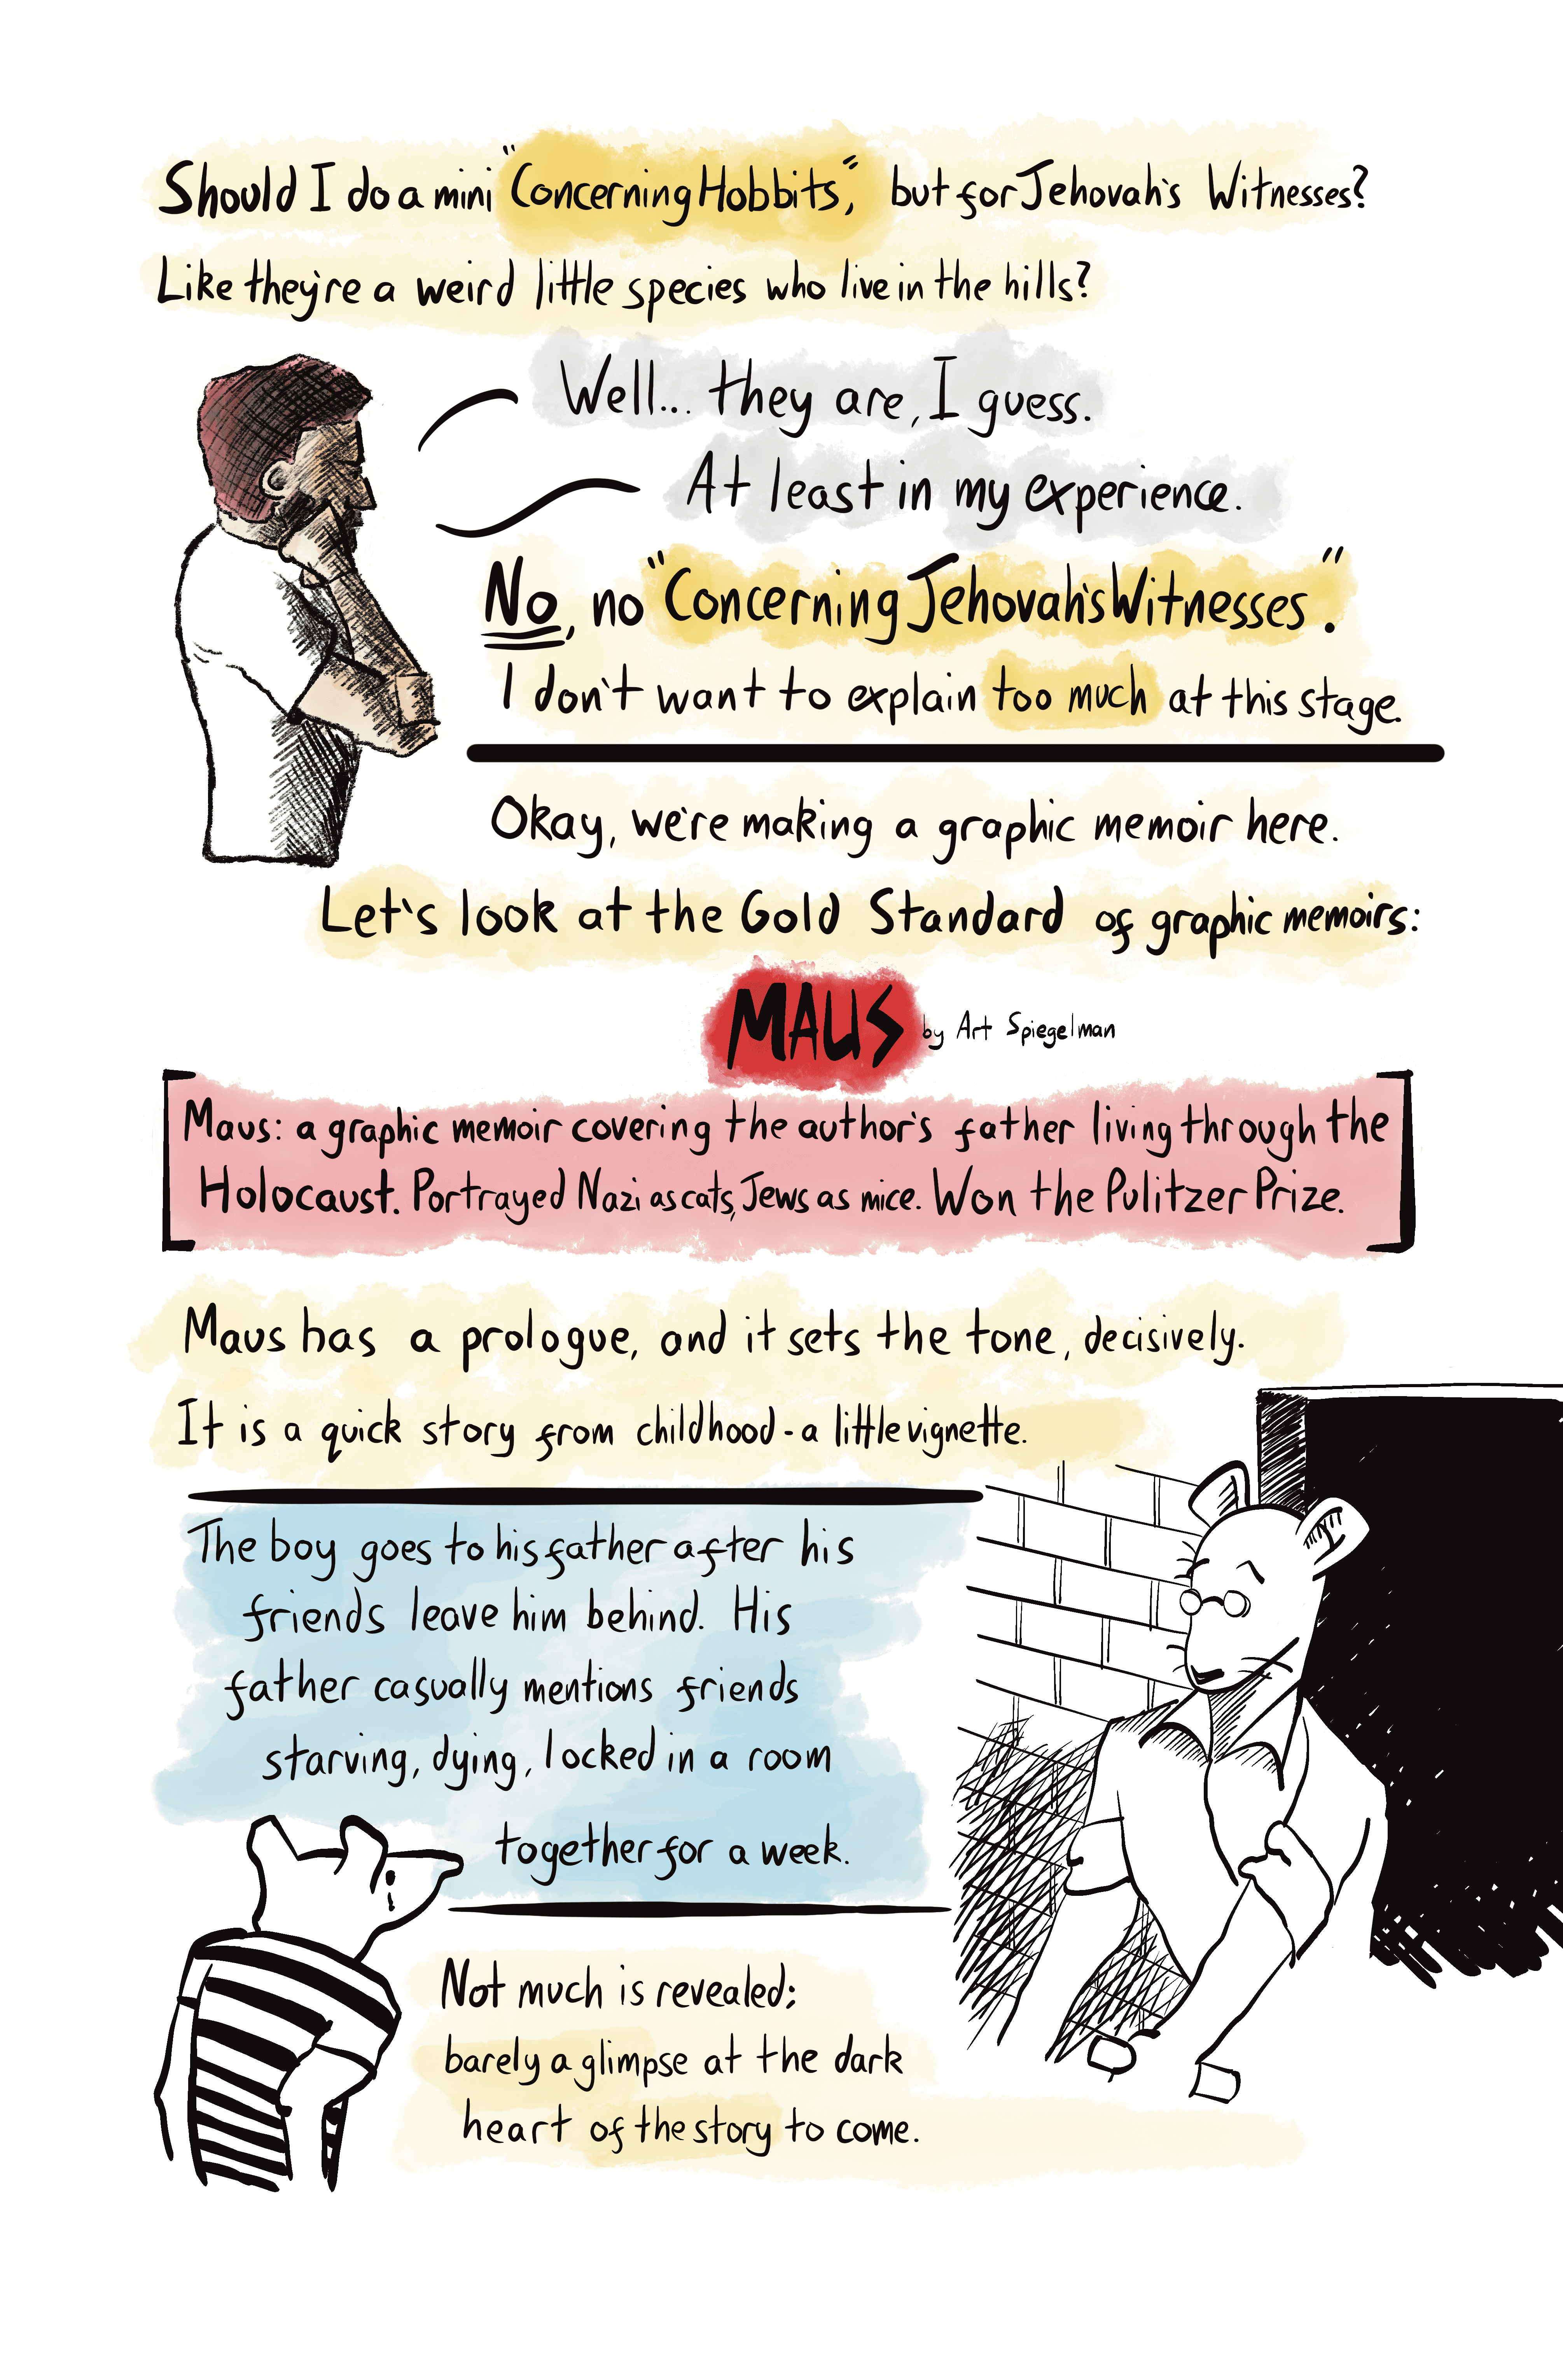 Should I do a mini "Concerning Hobbits," but for Jehovah's Witnesses?
Like they're a weird little species who live in the hills?
Well... they are, I guess.
At least in my experience.
No, no "Concerning Jehovah's Witnesses".
I don't want to explain too much at this stage.
Okay, we're making a graphic memoir here.
Let's look at the Gold Standard of graphic memoirs:
MAUS by Art Spiegelman
Maus: a graphic memoir covering the author's father living through the
Holocaust. Portrayed Nazi as cats, Jews as mice. Won the Pulitzer Prize.
Maus has a prologue, and it sets the tone, decisively.
It is a quick story from childhood - a little vignette.
The boy goes to his father after his
friends leave him behind. His
father casually mentions friends
starving, dying, locked in a room
together for a week.
Not much is revealed;
barely a glimpse at the dark
heart of the story to come.